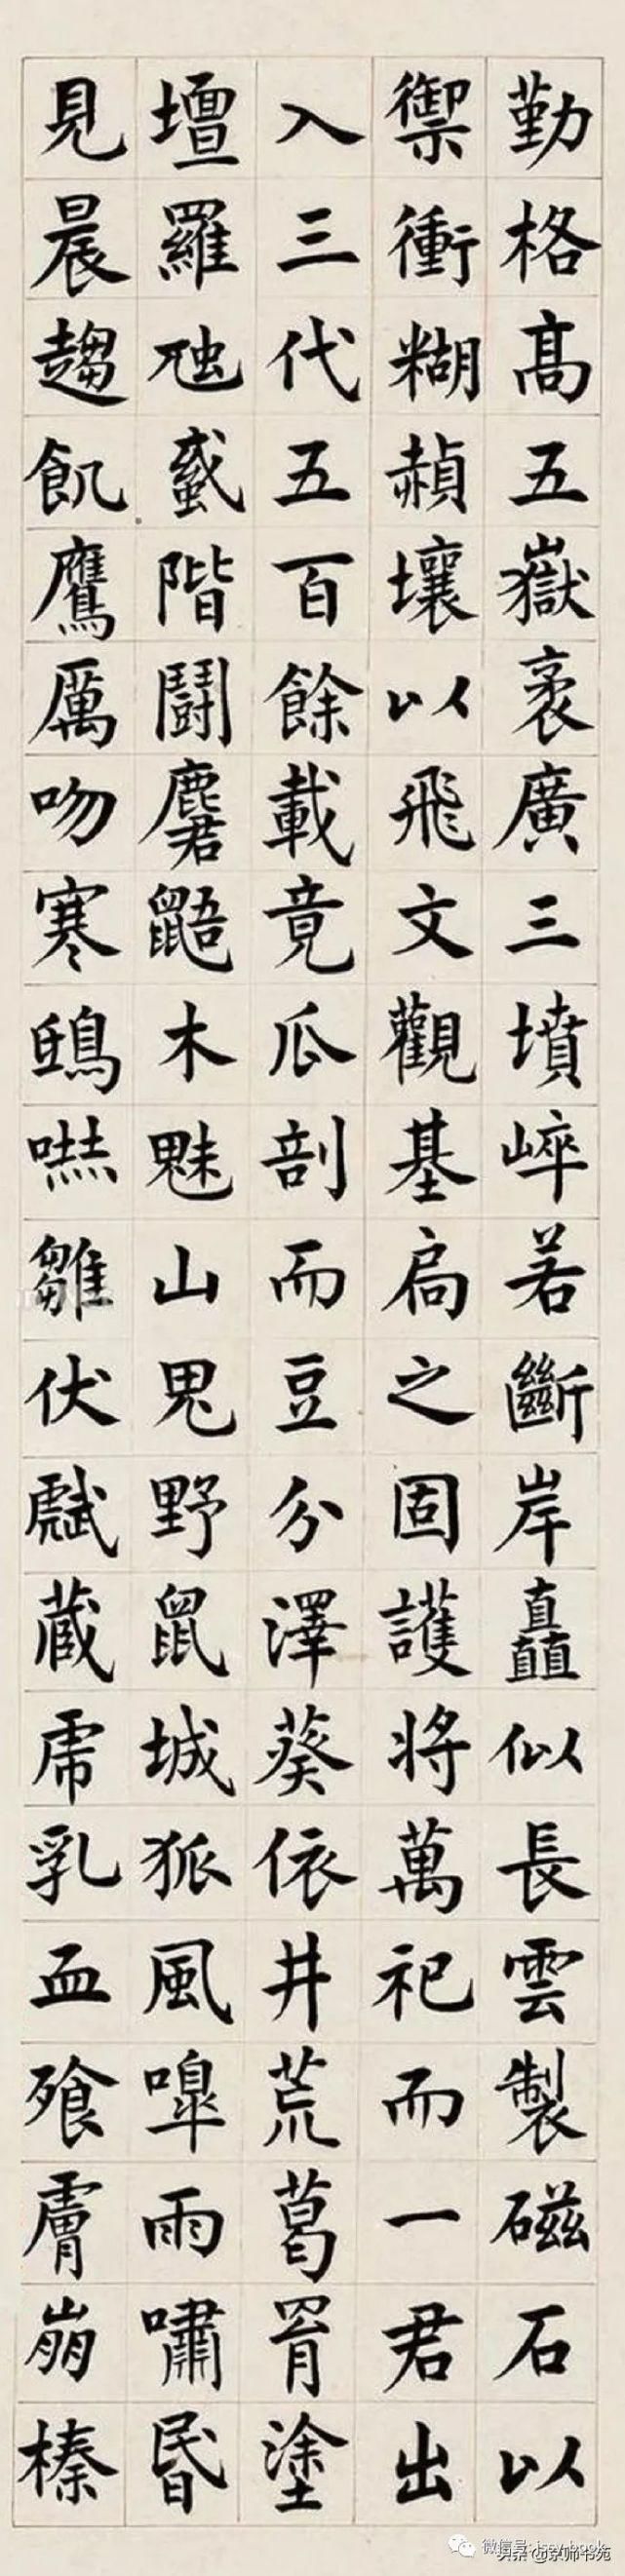 勤格高五嶽袤廣三墳崪若斷岸矗似長雲製磁石以
禦衝糊赬壤以飛文觀基扃之固護將萬祀而一君出
入三代五百餘載竟瓜剖而豆分澤葵依井荒葛罥塗
壇羅虺蜮階鬬麏鼯木魅山鬼野鼠城狐風嘷雨嘯昏
見晨趨飢鷹厲吻寒鴟嚇雛伏虣藏虎乳血飱膚崩榛
微信号: jssy-book
头条@京师书苑